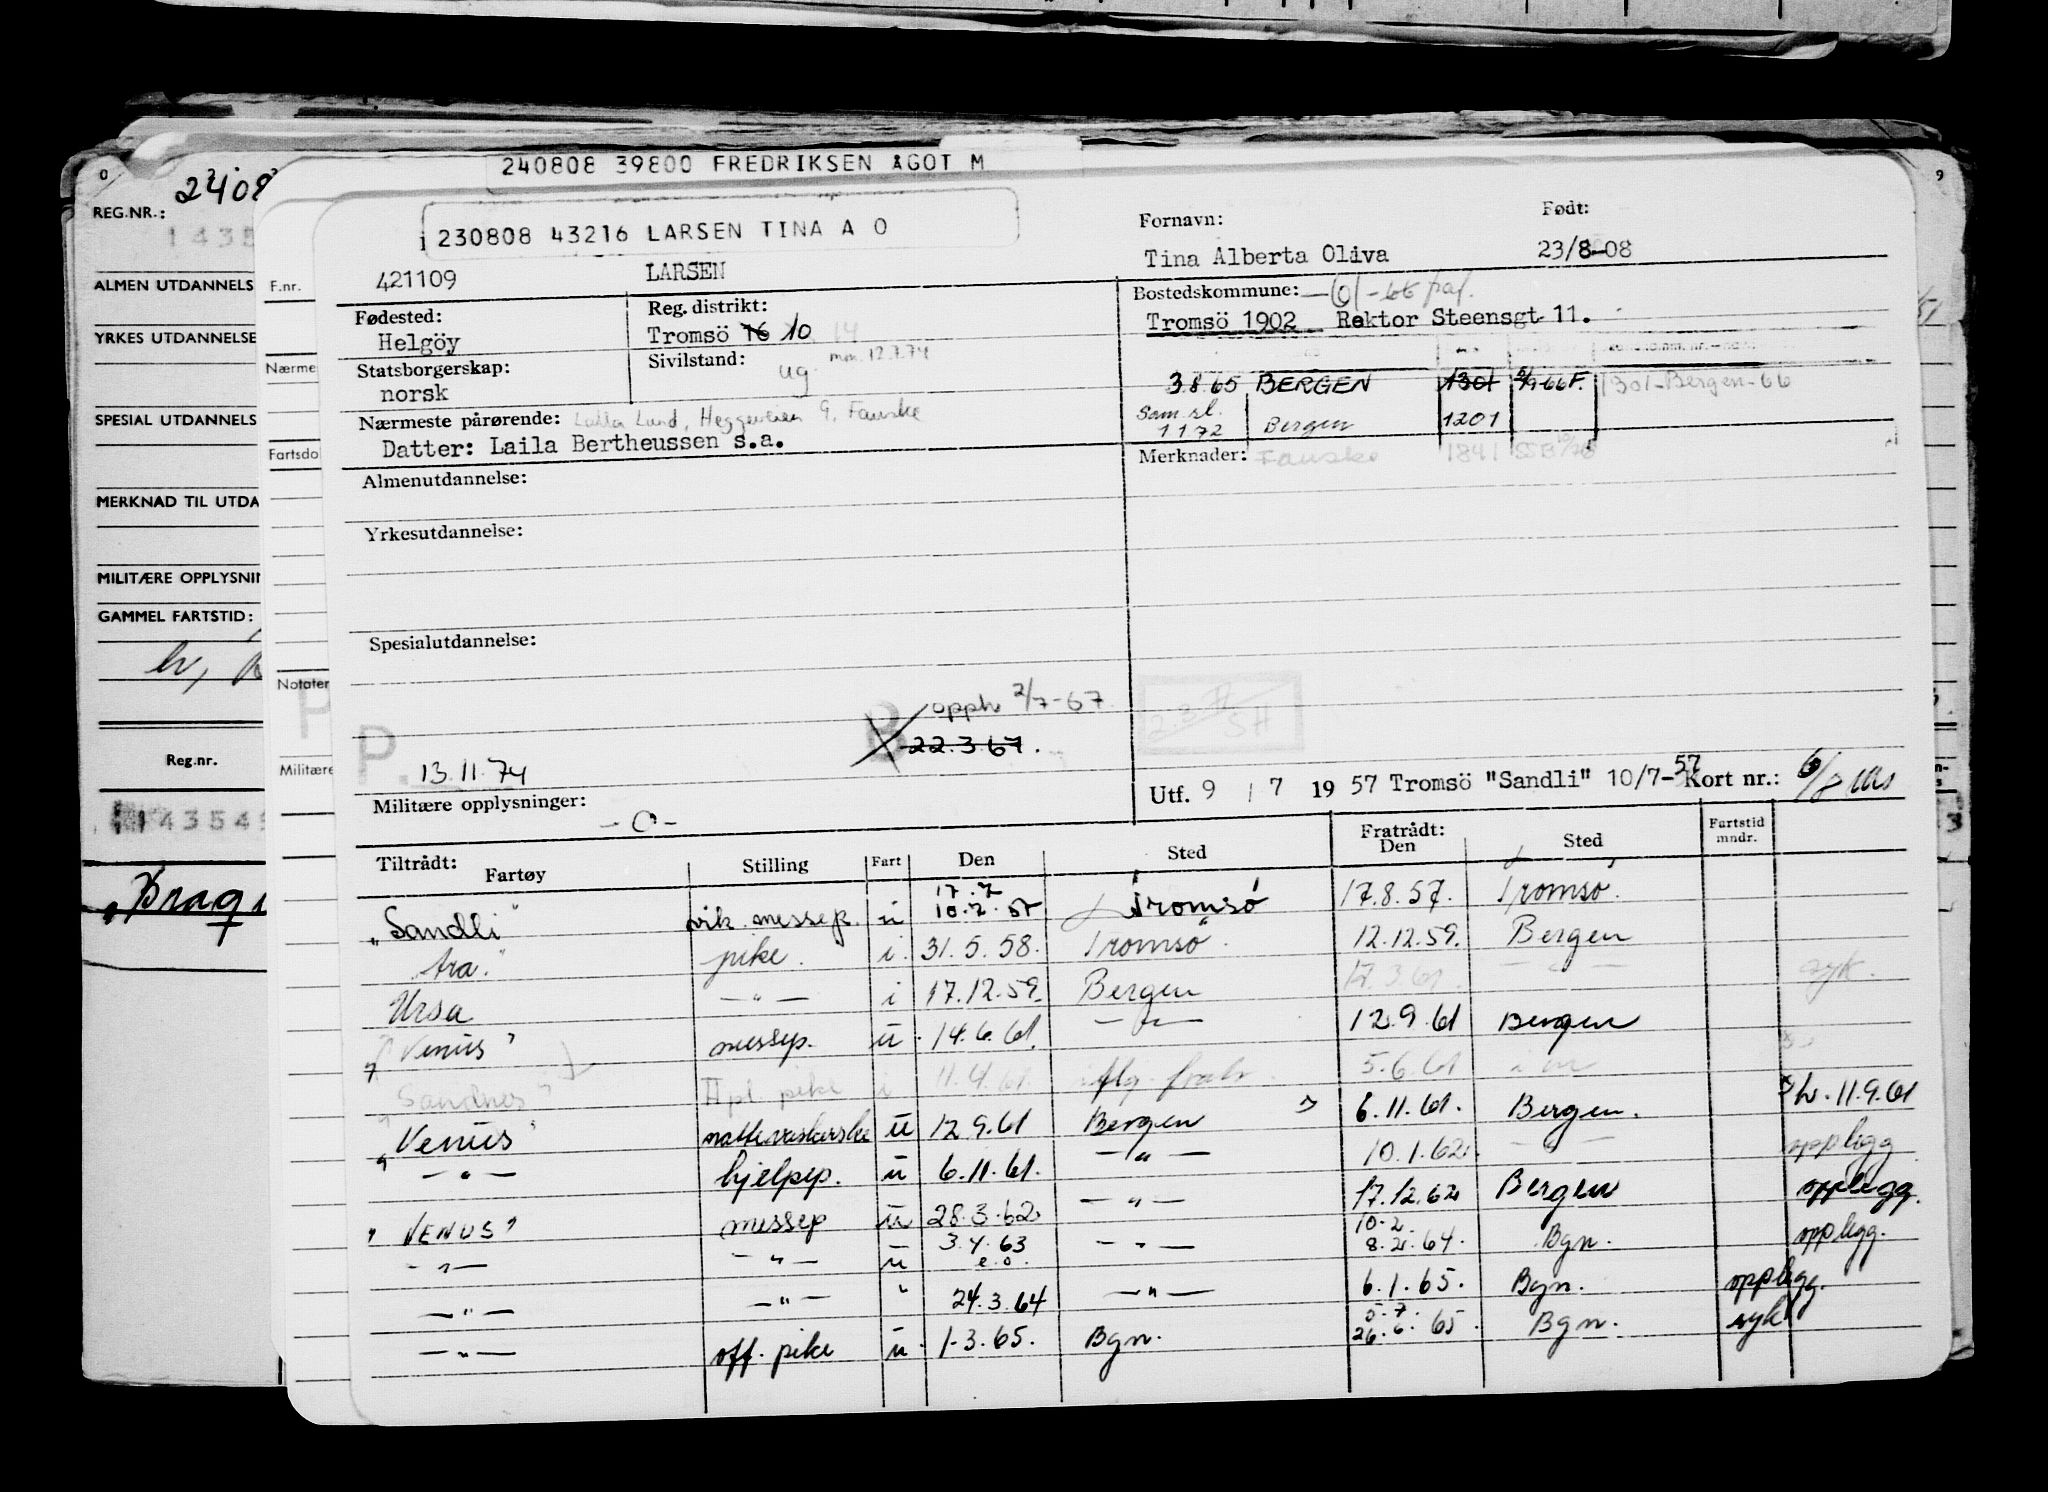 240808 39800 FREDRIKSEN ÅGOT M
REG.NR.:
ALMEN UTDANNELS
YRKES UTDANNELSE
SPESIAL UTDANNELS
MERKNAD TIL UTDA
MILITÆRE OPPLYSNIN
GAMMEL FARTSTID:
Reg.nr.
F.nr.
Nærme
Fartsdo
Notater
Militære
230808 43216 LARSEN TINA A O
421109 LARSEN
Fornavn: Født:
Tina Alberta Oliva 23/8-08
Fødested: Reg. distrikt: Bostedskommune:
Helgöy Tromsö 16 10 14 Tromsö 1902 Rektor Steensgt 11.
Statsborgerskap: Sivilstand: ug. mon. 12.7.74
norsk
3.8.65 BERGEN 1301 5/9-66 F. 1301-Bergen-66
Nærmeste pårørende: Laila Lund, Heggveien 9, Fauske
Datter: Laila Bertheussen s.a.
Sam.sl. 1172 Bergen 1201
Merknader: Fauske 1841 SSB 10/76
Almenutdannelse:
Yrkesutdannelse:
Spesialutdannelse:
opph 2/7-67.
22.3.67.
P. B
13.11.74
Militære opplysninger: -0-
Utf. 9 / 7 1957 Tromsö "Sandli" 10/7-57 Kort nr.:
Tiltrådt: Fartøy Stilling Fart Den Sted Fratrådt: Den Sted Fartstid mndr.
"Sandli" vik. messep. u 17.7 10.7.57 Tromsø 17.8.57. Tromsø.
Ara." pike. i. 31.5.58. Tromsø. 12.12.59. Bergen
Ursa —"— i 17.12.59. Bergen 17.3.61. —"— syk.
"Venus" messep. u 14.6.61. —"— 12.9.61 Bergen
"Sandnes" II pl. pike i 11.4.61. 5.6.61
"Venus" mattevaskerske u 12.9.61 Bergen 6.11.61. Bergen. 11.9.61
—"— hjelpep. u 6.11.61. —"— 10.1.62. —"— opplegg
"VENUS" messep u 28.3.62. —"— 17.12.62 Bergen opplegg.
—"— —"— u 3.4.63 e.o. —"— 10.2. 8.2.64. Bgn. opplegg.
—"— —"— " 24.3.64 —"— 6.1.65. Bgn. opplegg.
—"— off. pike u. 1.3.65. Bgn. 5.7. 26.6.65. Bgn. syk